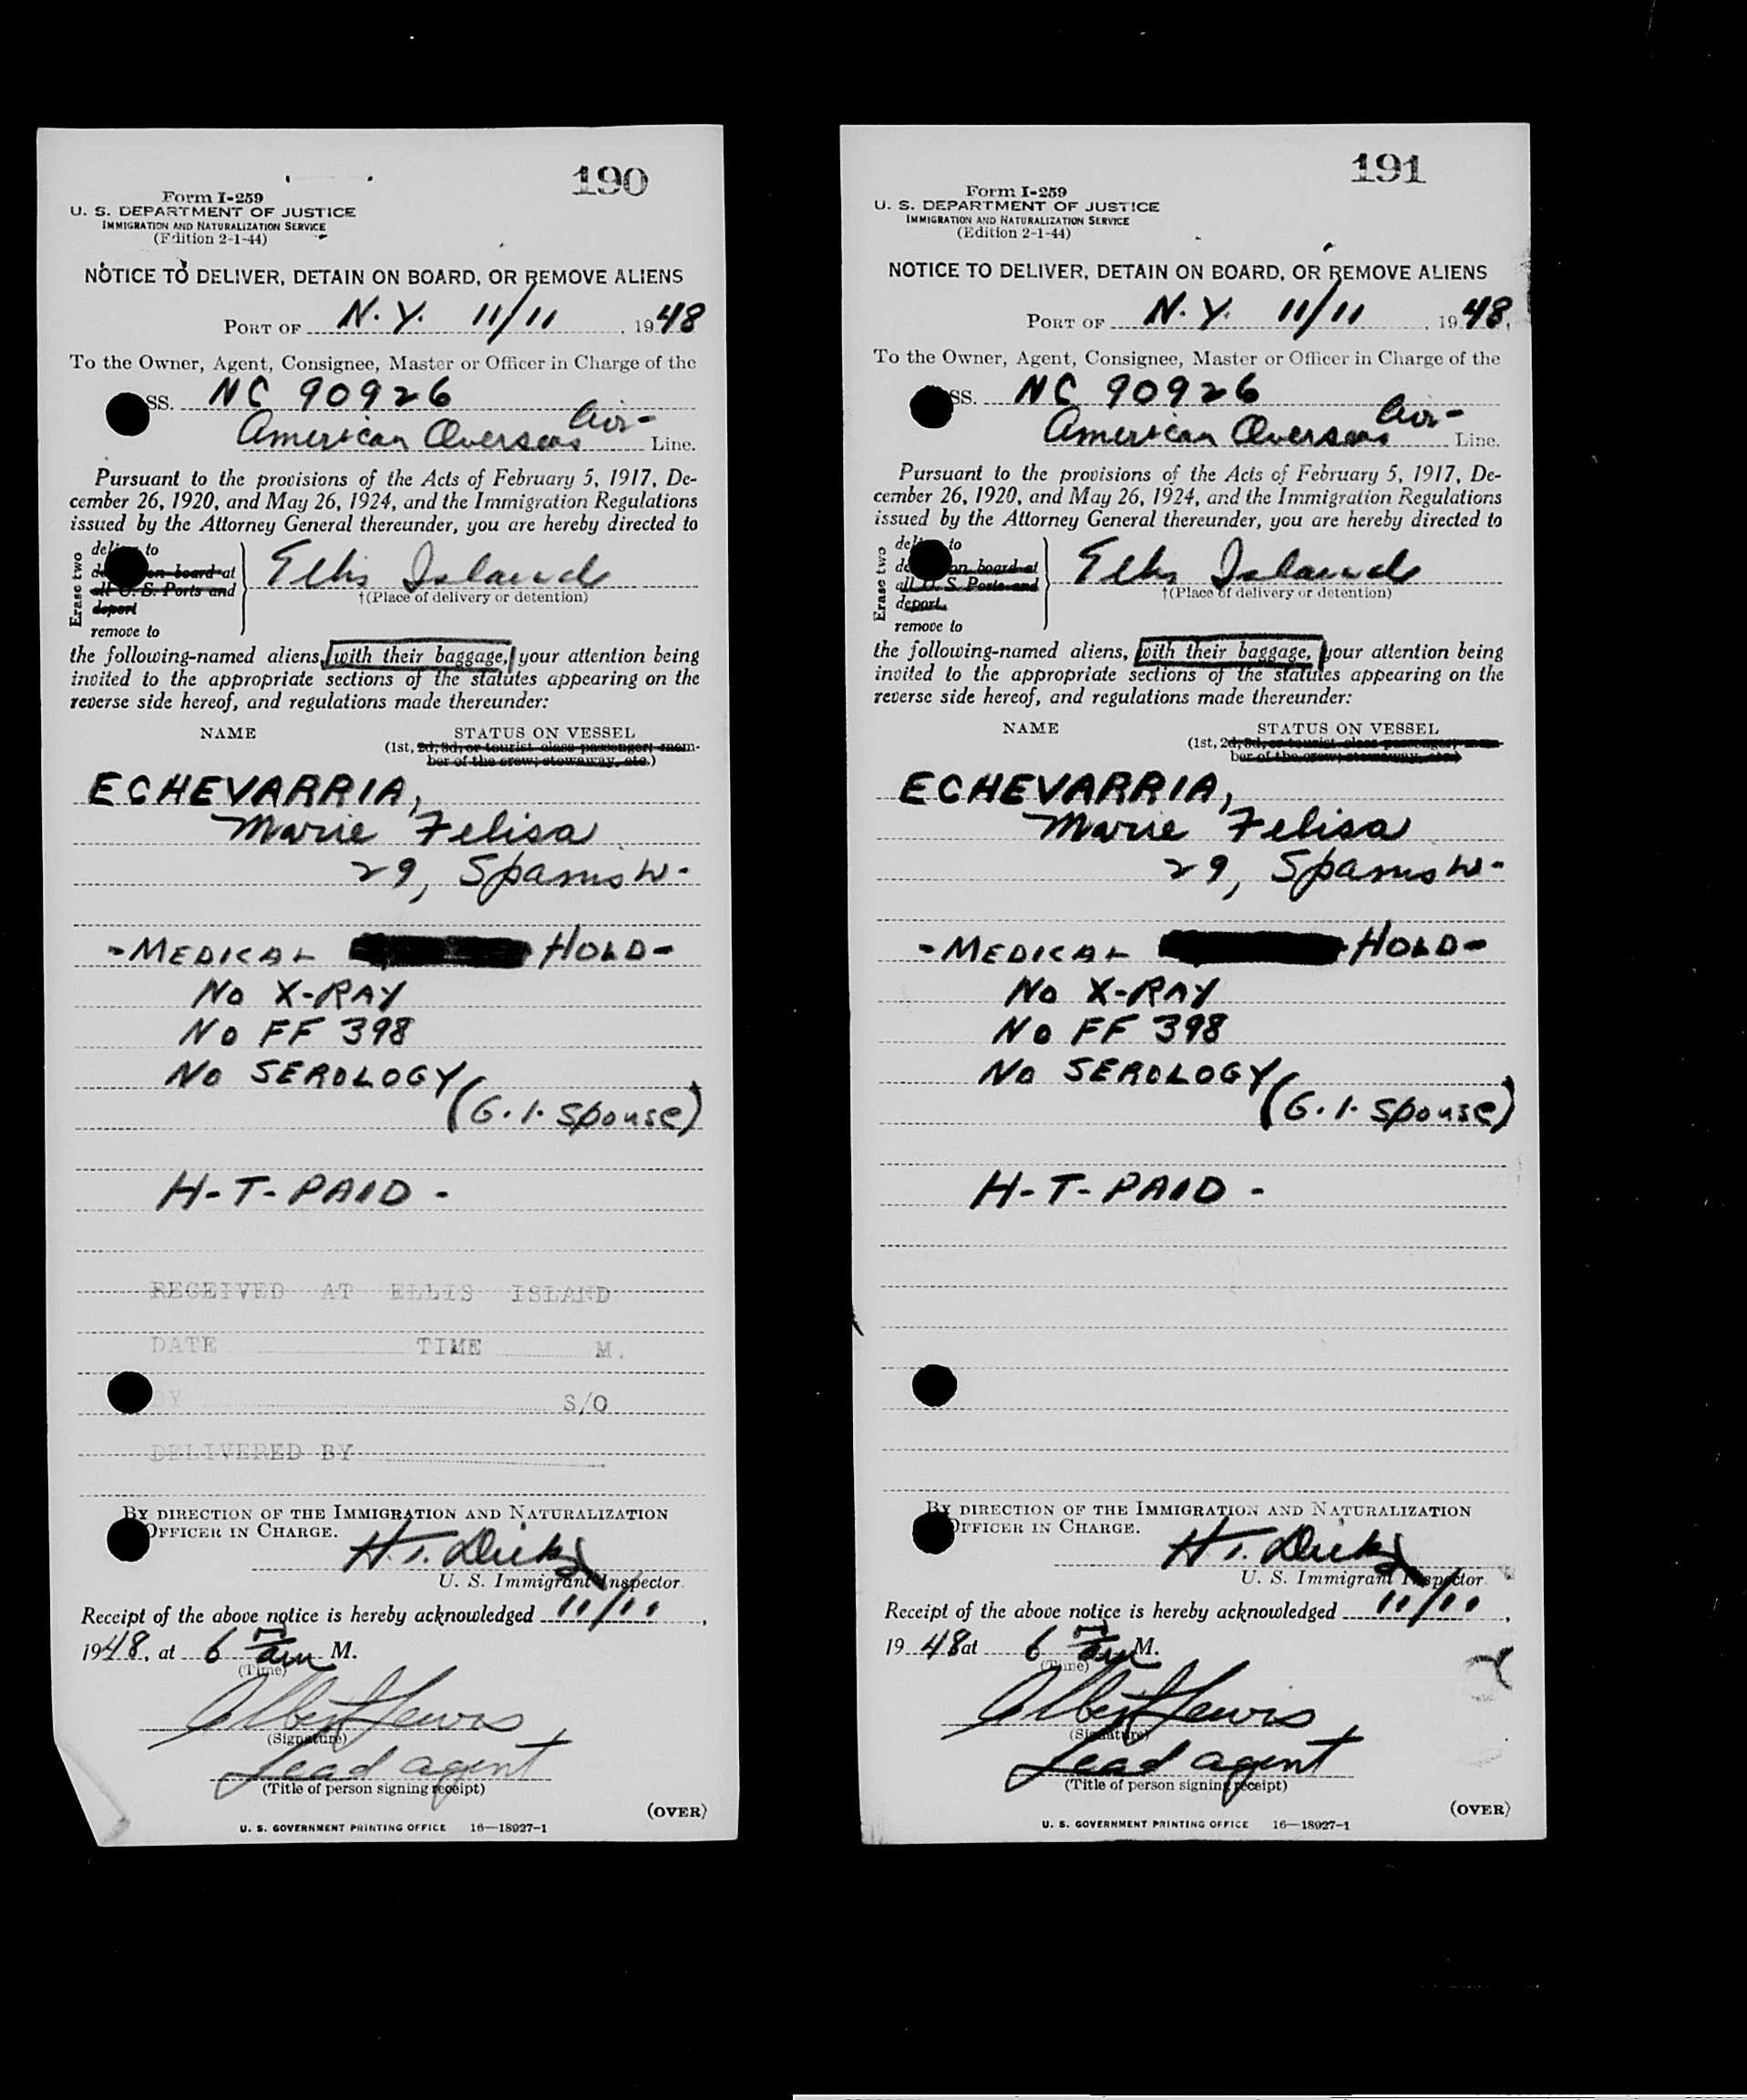 190
Form I-259
U. S. DEPARTMENT OF JUSTICE
IMMIGRATION AND NATURALIZATION SERVICE
(Edition 2-1-44)
NOTICE TO DELIVER, DETAIN ON BOARD, OR REMOVE ALIENS
PORT OF N.Y. 11/11, 1948
To the Owner, Agent, Consignee, Master or Officer in Charge of the
SS. NC 90926
American Overseas Air- Line.
Pursuant to the provisions of the Acts of February 5, 1917, De-
cember 26, 1920, and May 26, 1924, and the Immigration Regulations
issued by the Attorney General thereunder, you are hereby directed to
Erase two
to
on board at
all U. S. Ports and
deport
remove to
Ellis Island
†(Place of delivery or detention)
the following-named aliens, with their baggage, your attention being
invited to the appropriate sections of the statutes appearing on the
reverse side hereof, and regulations made thereunder:
NAME STATUS ON VESSEL
(1st, 2d, 3d, or tourist class passenger; mem-
ber of the crew; stowaway, etc.)
ECHEVARRIA,
Marie Felisa
29, Spanish W-
-MEDICAL HOLD-
No X-RAY
No FF 398
No SEROLOGY
(G.I. Spouse)
H-T-PAID -
RECEIVED AT ELLIS ISLAND
DATE TIME M.
BY S/O
DELIVERED BY
BY DIRECTION OF THE IMMIGRATION AND NATURALIZATION
OFFICER IN CHARGE.
U. S. Immigrant Inspector.
Receipt of the above notice is hereby acknowledged 11/11,
1948, at 6 am M.
(Time)
Albert Lewis
(Signature)
Lead agent
(Title of person signing receipt)
(OVER)
U. S. GOVERNMENT PRINTING OFFICE 16—18927-1
191
Form I-259
U. S. DEPARTMENT OF JUSTICE
IMMIGRATION AND NATURALIZATION SERVICE
(Edition 2-1-44)
NOTICE TO DELIVER, DETAIN ON BOARD, OR REMOVE ALIENS
PORT OF N.Y. 11/11, 1948,
To the Owner, Agent, Consignee, Master or Officer in Charge of the
SS. NC 90926
American Overseas Air- Line.
Pursuant to the provisions of the Acts of February 5, 1917, De-
cember 26, 1920, and May 26, 1924, and the Immigration Regulations
issued by the Attorney General thereunder, you are hereby directed to
Erase two
to
on board at
all U. S. Ports and
deport
remove to
Ellis Island
†(Place of delivery or detention)
the following-named aliens, with their baggage, your attention being
invited to the appropriate sections of the statutes appearing on the
reverse side hereof, and regulations made thereunder:
NAME STATUS ON VESSEL
(1st, 2d, 3d, or tourist class passenger; mem-
ber of the crew; stowaway, etc.)
ECHEVARRIA,
Marie Felisa
29, Spanish W-
-MEDICAL HOLD-
No X-RAY
No FF 398
No SEROLOGY
(G.I. Spouse)
H-T-PAID -
BY DIRECTION OF THE IMMIGRATION AND NATURALIZATION
OFFICER IN CHARGE.
U. S. Immigrant Inspector.
Receipt of the above notice is hereby acknowledged 11/11,
1948 at 6 am M.
(Time)
Albert Lewis
(Signature)
Lead agent
(Title of person signing receipt)
(OVER)
U. S. GOVERNMENT PRINTING OFFICE 16—18927-1